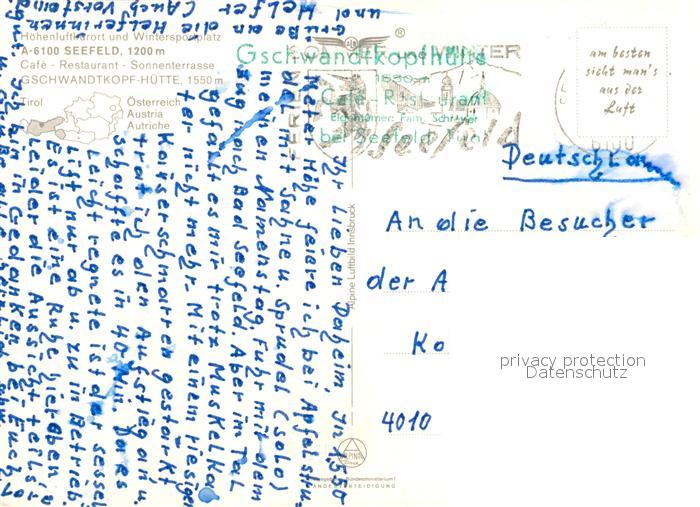 Höhenluftkurort und Wintersportplatz
A-6100 SEEFELD, 1200 m
Café - Restaurant - Sonnenterrasse
GSCHWANDTKOPF-HÜTTE, 1550 m
Tirol
Österreich
Austria
Autriche
Gschwandtkopfhütte
Café Restaurant
bei Seefeld
WINTER
Seefeld
am besten
sieht man's
aus der
Luft
Alpine Luftbild Innsbruck
Ihr Lieben Daheim, In 1550
Meter Höhe feiere ich bei Apfelstru-
del mit Sahne u. Sprudel (solo)
meinen Namenstag. Fuhr mit dem
Zug nach Bad Seefeld. Aber im Tal
gefällt es mir trotz Muskelka-
ter nicht mehr. Mit einem riesigen
Kaiserschmarren gestärkt
trat ich den Aufstieg an u.
schaffte es in 40 Min. Da es
Leicht regnete ist der Sessel-
lift nur ab u. zu in Betrieb.
Es ist eine Ruhe hier oben.
Leider die Aussicht teils
in Gedanken bei Euch
Grüße an die Helferinnen
und Helfer (Auch Vorstand)
Deutschland
An die Besucher
der A
Ko
4010
privacy protection
Datenschutz